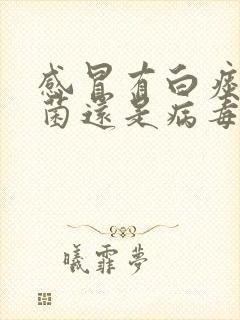 感冒有白痰
菌還是病毒
曦霏夢